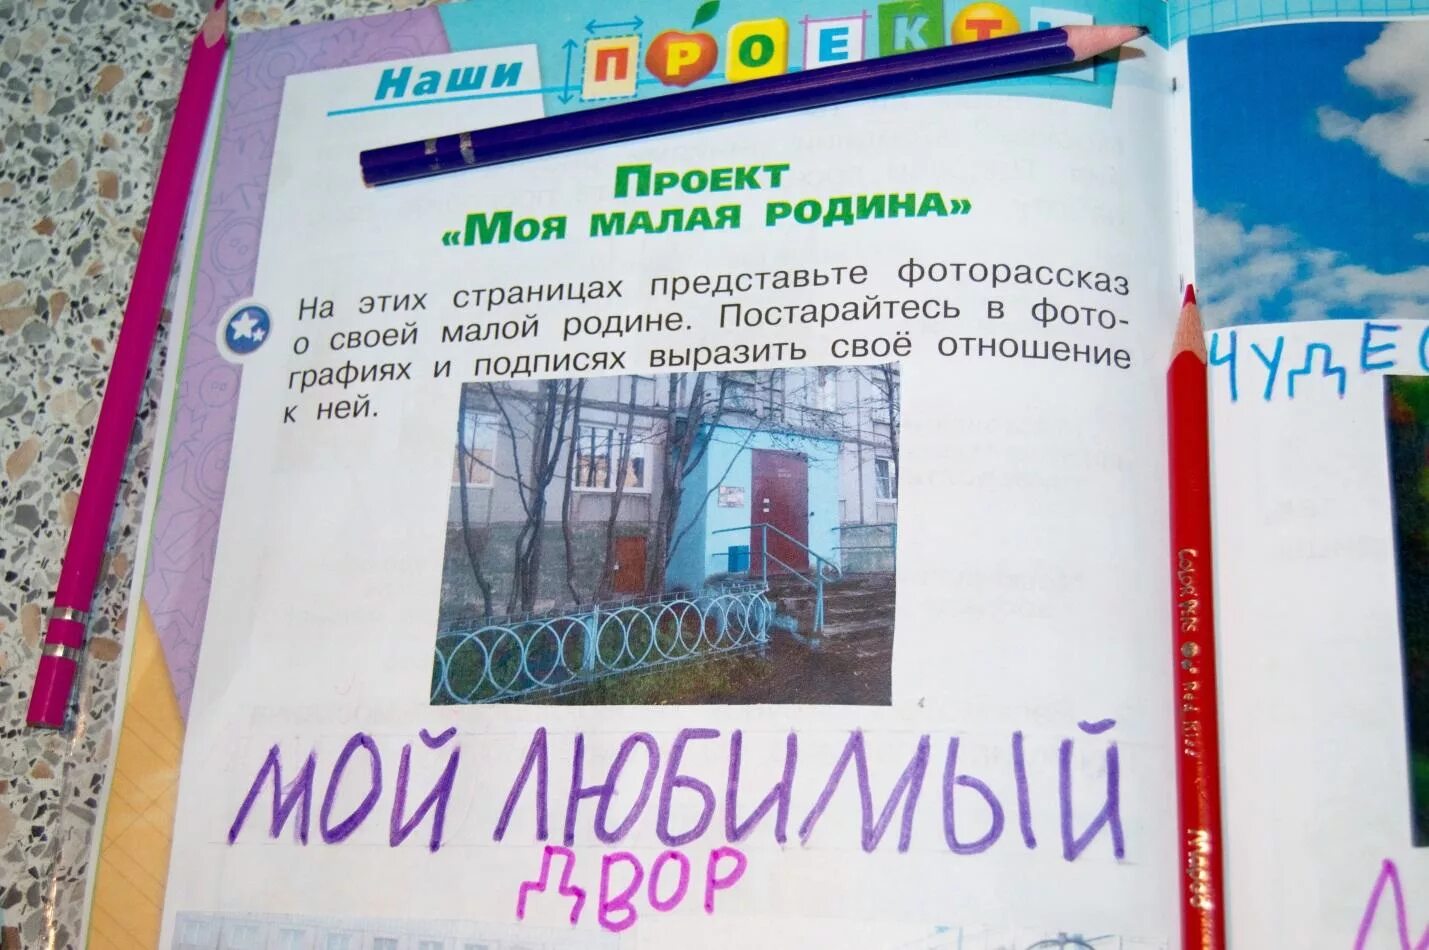 Наши ПРОЕКТЫ
Проект
«Моя малая родина»
На этих страницах представьте фоторассказ
о своей малой родине. Постарайтесь в фото-
графиях и подписях выразить своё отношение
к ней.
МОЙ ЛЮБИМЫЙ
ДВОР
ЧУДЕС
COLOR PEPS
Red Kiss
Maped